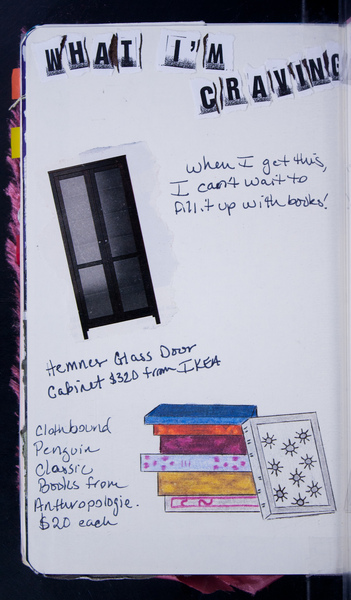 WHAT I'M
CRAVING
When I get this,
I can't wait to
fill it up with books!
Hemner Glass Door
Cabinet $320 from IKEA
Clothbound
Penguin
Classic
Books from
Anthropologie.
$20 each